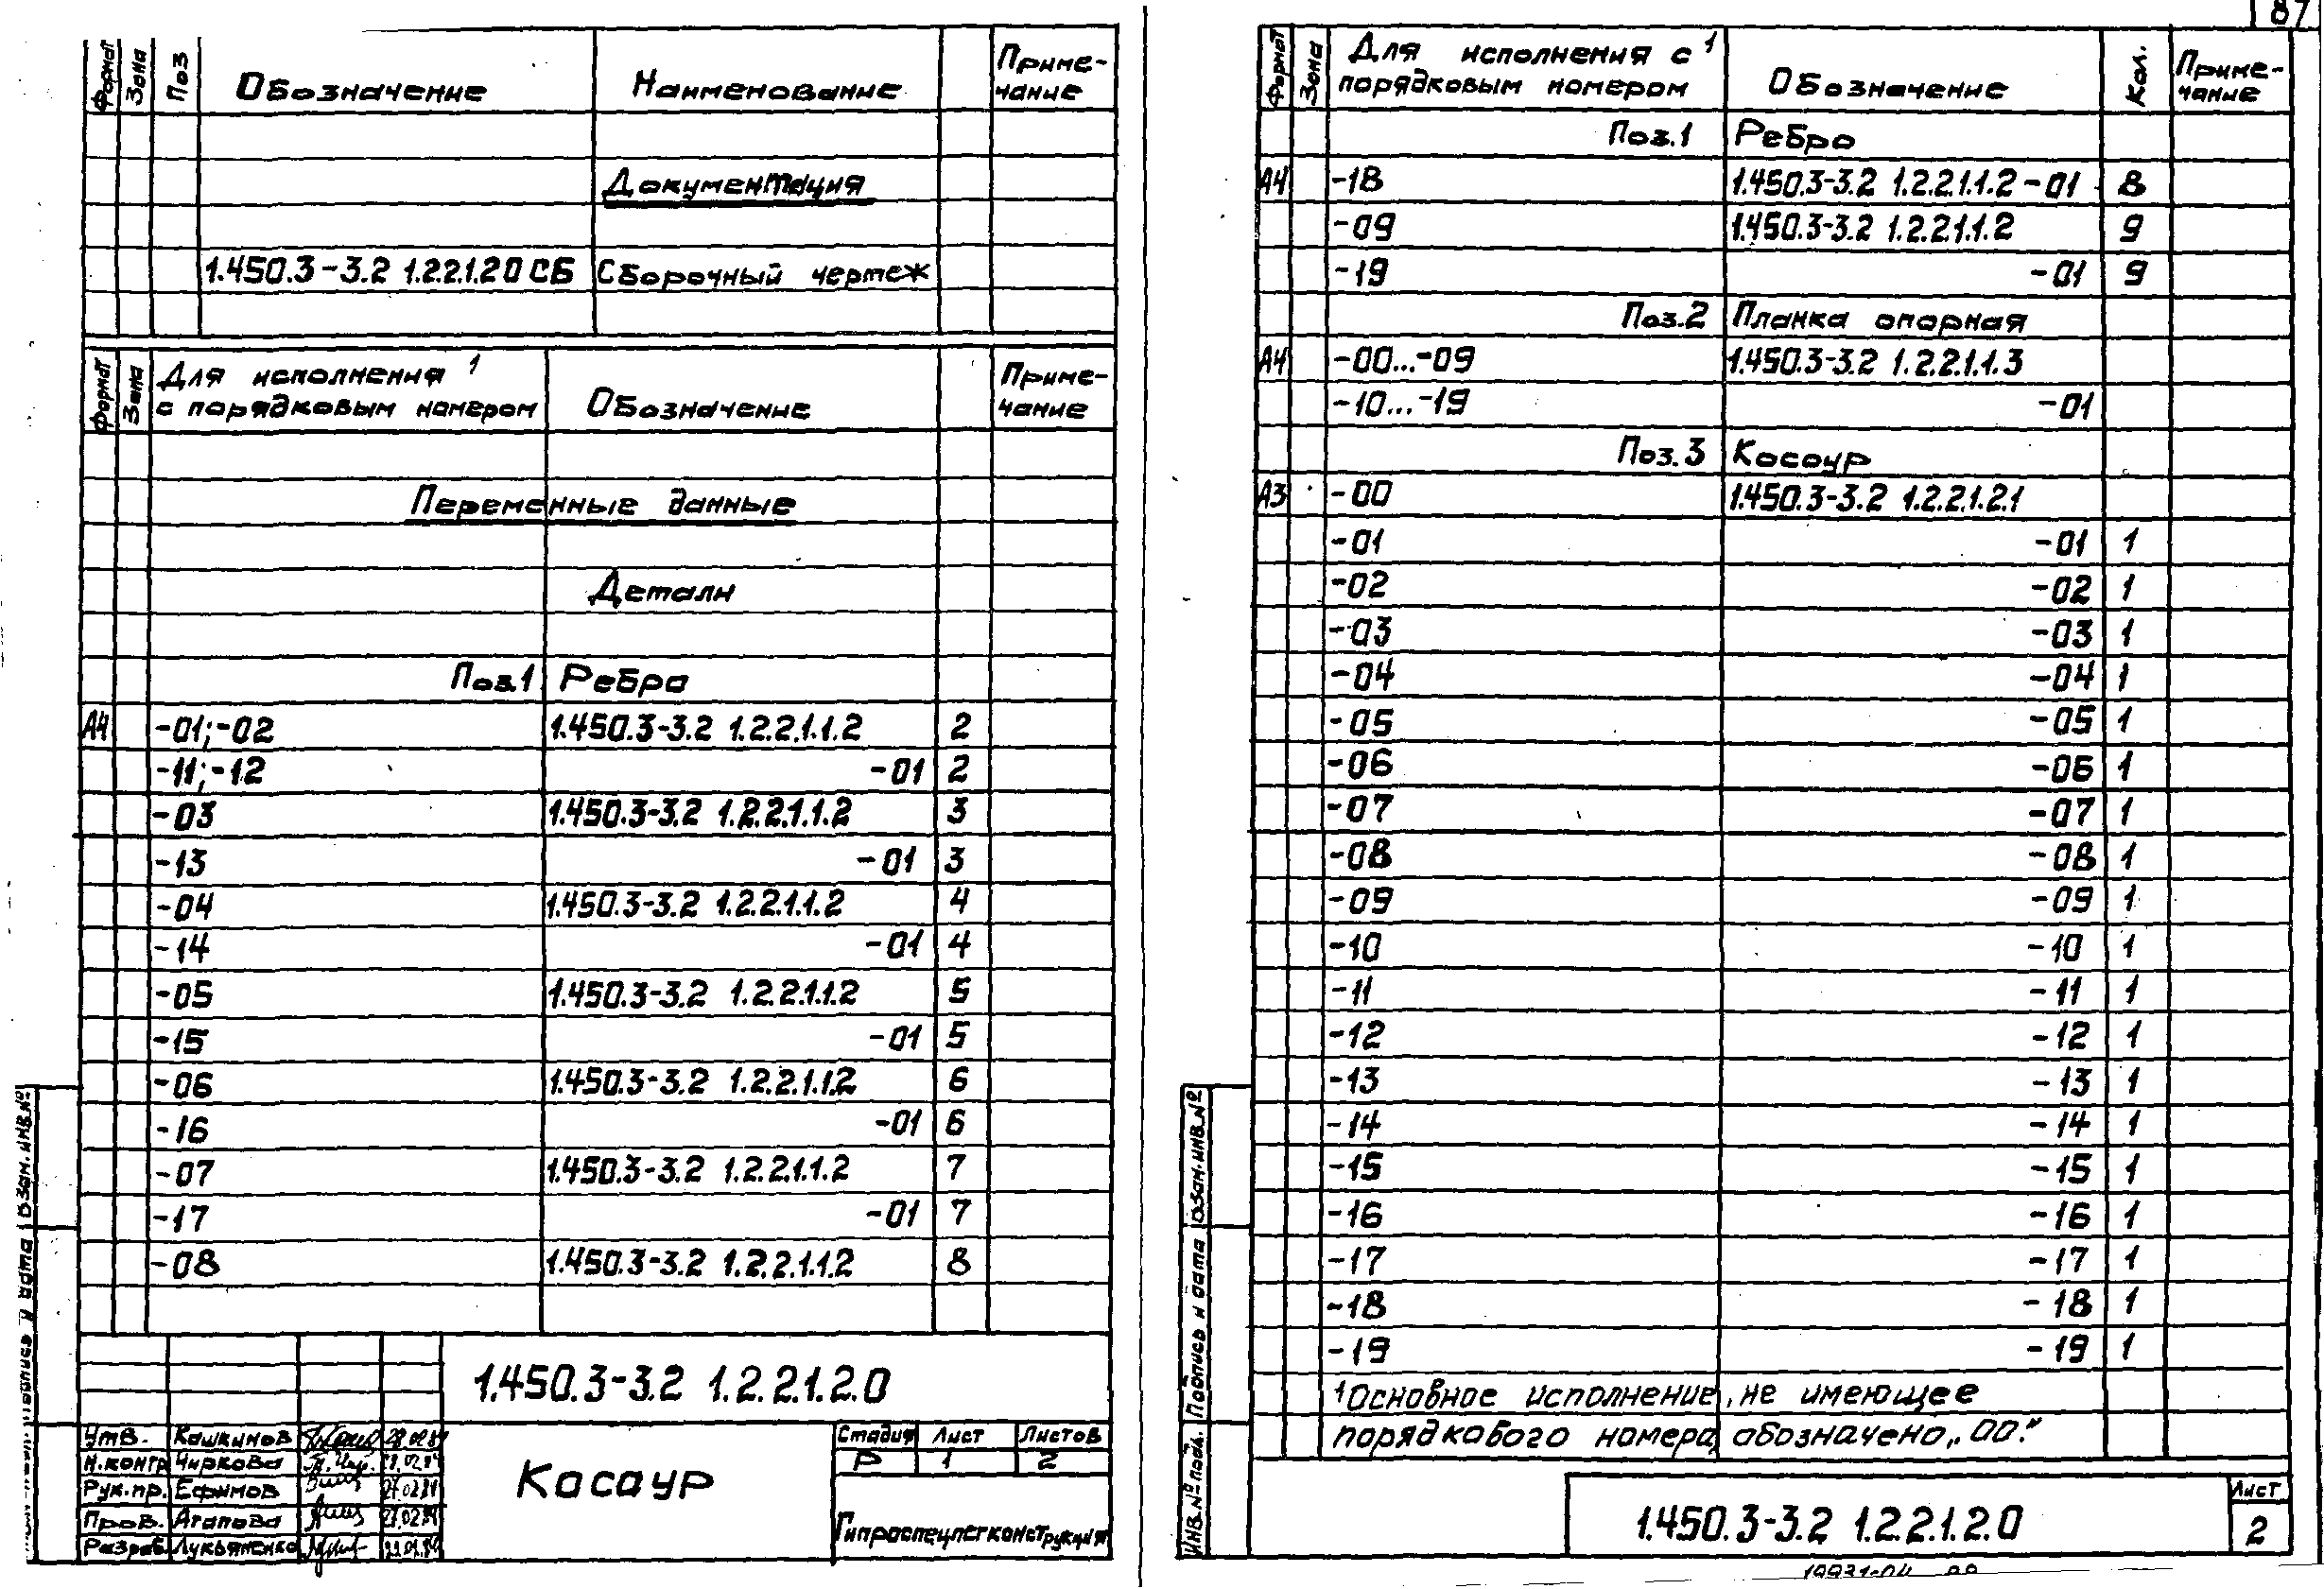 Формат Зона Поз Обозначение Наименование Приме-
чание
Документация
1.450.3-3.2 1.2.2.1.2.0 СБ Сборочный чертеж
Формат Зона Для исполнения 1
с порядковым номером Обозначение Приме-
чание
Переменные данные
Детали
Поз.1 Ребра
А4 -01;-02 1.450.3-3.2 1.2.2.1.1.2 2
-11;-12 -01 2
-03 1.450.3-3.2 1.2.2.1.1.2 3
-13 -01 3
-04 1.450.3-3.2 1.2.2.1.1.2 4
-14 -01 4
-05 1.450.3-3.2 1.2.2.1.1.2 5
-15 -01 5
-06 1.450.3-3.2 1.2.2.1.1.2 6
-16 -01 6
-07 1.450.3-3.2 1.2.2.1.1.2 7
-17 -01 7
-08 1.450.3-3.2 1.2.2.1.1.2 8
1.450.3-3.2 1.2.2.1.2.0
Утв. Кашкинов
Н.контр Чиркова
Рук.пр. Ефимов
Пров. Агапова
Разраб. Лукьяненко
Косоур
Стадия Лист Листов
Р 1 2
Гипроспецлегконструкция
Взам.инв.№
87
Формат Зона Для исполнения с 1
порядковым номером Обозначение Кол. Приме-
чание
Поз.1 Ребро
А4 -18 1.450.3-3.2 1.2.2.1.1.2-01 8
-09 1.450.3-3.2 1.2.2.1.1.2 9
-19 -01 9
Поз.2 Планка опорная
А4 -00...-09 1.450.3-3.2 1.2.2.1.1.3
-10...-19 -01
Поз.3 Косоур
А3 -00 1.450.3-3.2 1.2.2.1.2.1
-01 -01 1
-02 -02 1
-03 -03 1
-04 -04 1
-05 -05 1
-06 -06 1
-07 -07 1
-08 -08 1
-09 -09 1
-10 -10 1
-11 -11 1
-12 -12 1
-13 -13 1
-14 -14 1
-15 -15 1
-16 -16 1
-17 -17 1
-18 -18 1
-19 -19 1
1 Основное исполнение, не имеющее
порядкового номера, обозначено „00."
Инв.№ подл. Подпись и дата Взам.инв.№
1.450.3-3.2 1.2.2.1.2.0
Лист
2